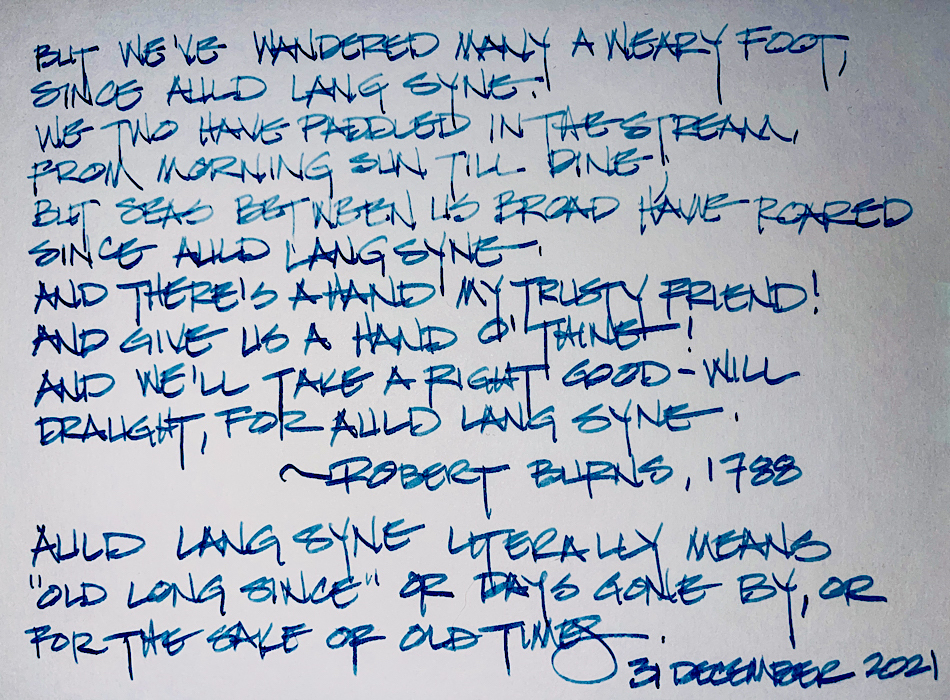 BUT WE'VE WANDERED MANY A WEARY FOOT,
SINCE AULD LANG SYNE.
WE TWO HAVE PADDLED IN THE STREAM,
FROM MORNING SUN TILL DINE;
BUT SEAS BETWEEN US BROAD HAVE ROARED
SINCE AULD LANG SYNE.
AND THERE'S A HAND MY TRUSTY FRIEND!
AND GIVE US A HAND O' THINE!
AND WE'LL TAKE A RIGHT GOOD-WILL
DRAUGHT, FOR AULD LANG SYNE.
~ROBERT BURNS, 1788
AULD LANG SYNE LITERALLY MEANS
"OLD LONG SINCE" OR DAYS GONE BY, OR
FOR THE SAKE OF OLD TIMES.
31 DECEMBER 2021